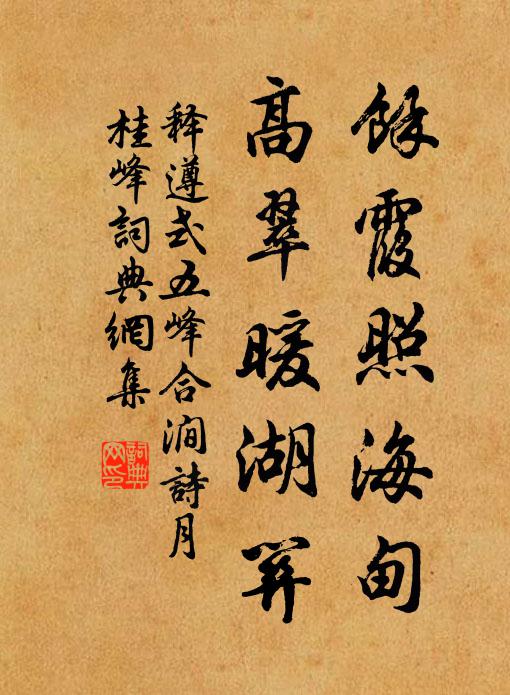 餘霞照海甸
高翠暖湖開
釋遵式五峰合澗詩月
桂峰詞典網集
詞典
网印